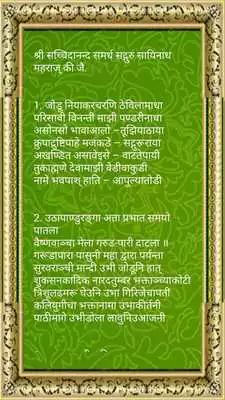 श्री सच्चिदानन्द समर्थ सद्गुरु सायिनाथ
महराज् की जै.
1. जोडु नियाकरचरणि ठेविलामाधा
परिसावी विनन्ती माझी पण्डरीनाधा
असोनसो भावाआलो –तूझियाठाया
क्रुपाद्रुष्टिपाहे मजकडे – सद्गुरूराया
अखण्डित असावेइसे – वाटतेपायी
तुकाह्मणे देवामाझी वेडीवाकुडी
नामे भवपाश् हाति – आपुल्यातोडी
2. उठापाण्डुरङ्गा अता प्रभात समयो
पातला
वैष्णवाञ्चा मेला गरुड-पारी दाटला ॥
गरूडापारा पासुनी महा द्वारा पर्यन्ता
सुरवराञ्ची मान्दी उभी जोडूनि हात्
शुकसनकादिक नारदतुम्बर भक्ताञ्च्याकोटी
त्रिशूलढमरू घेउनि उभा गिरिजेचापती
कलियुगीचा भक्तानामा उभाकीर्तनी
पाठीमागे उभीडोला लावुनिउआजनी